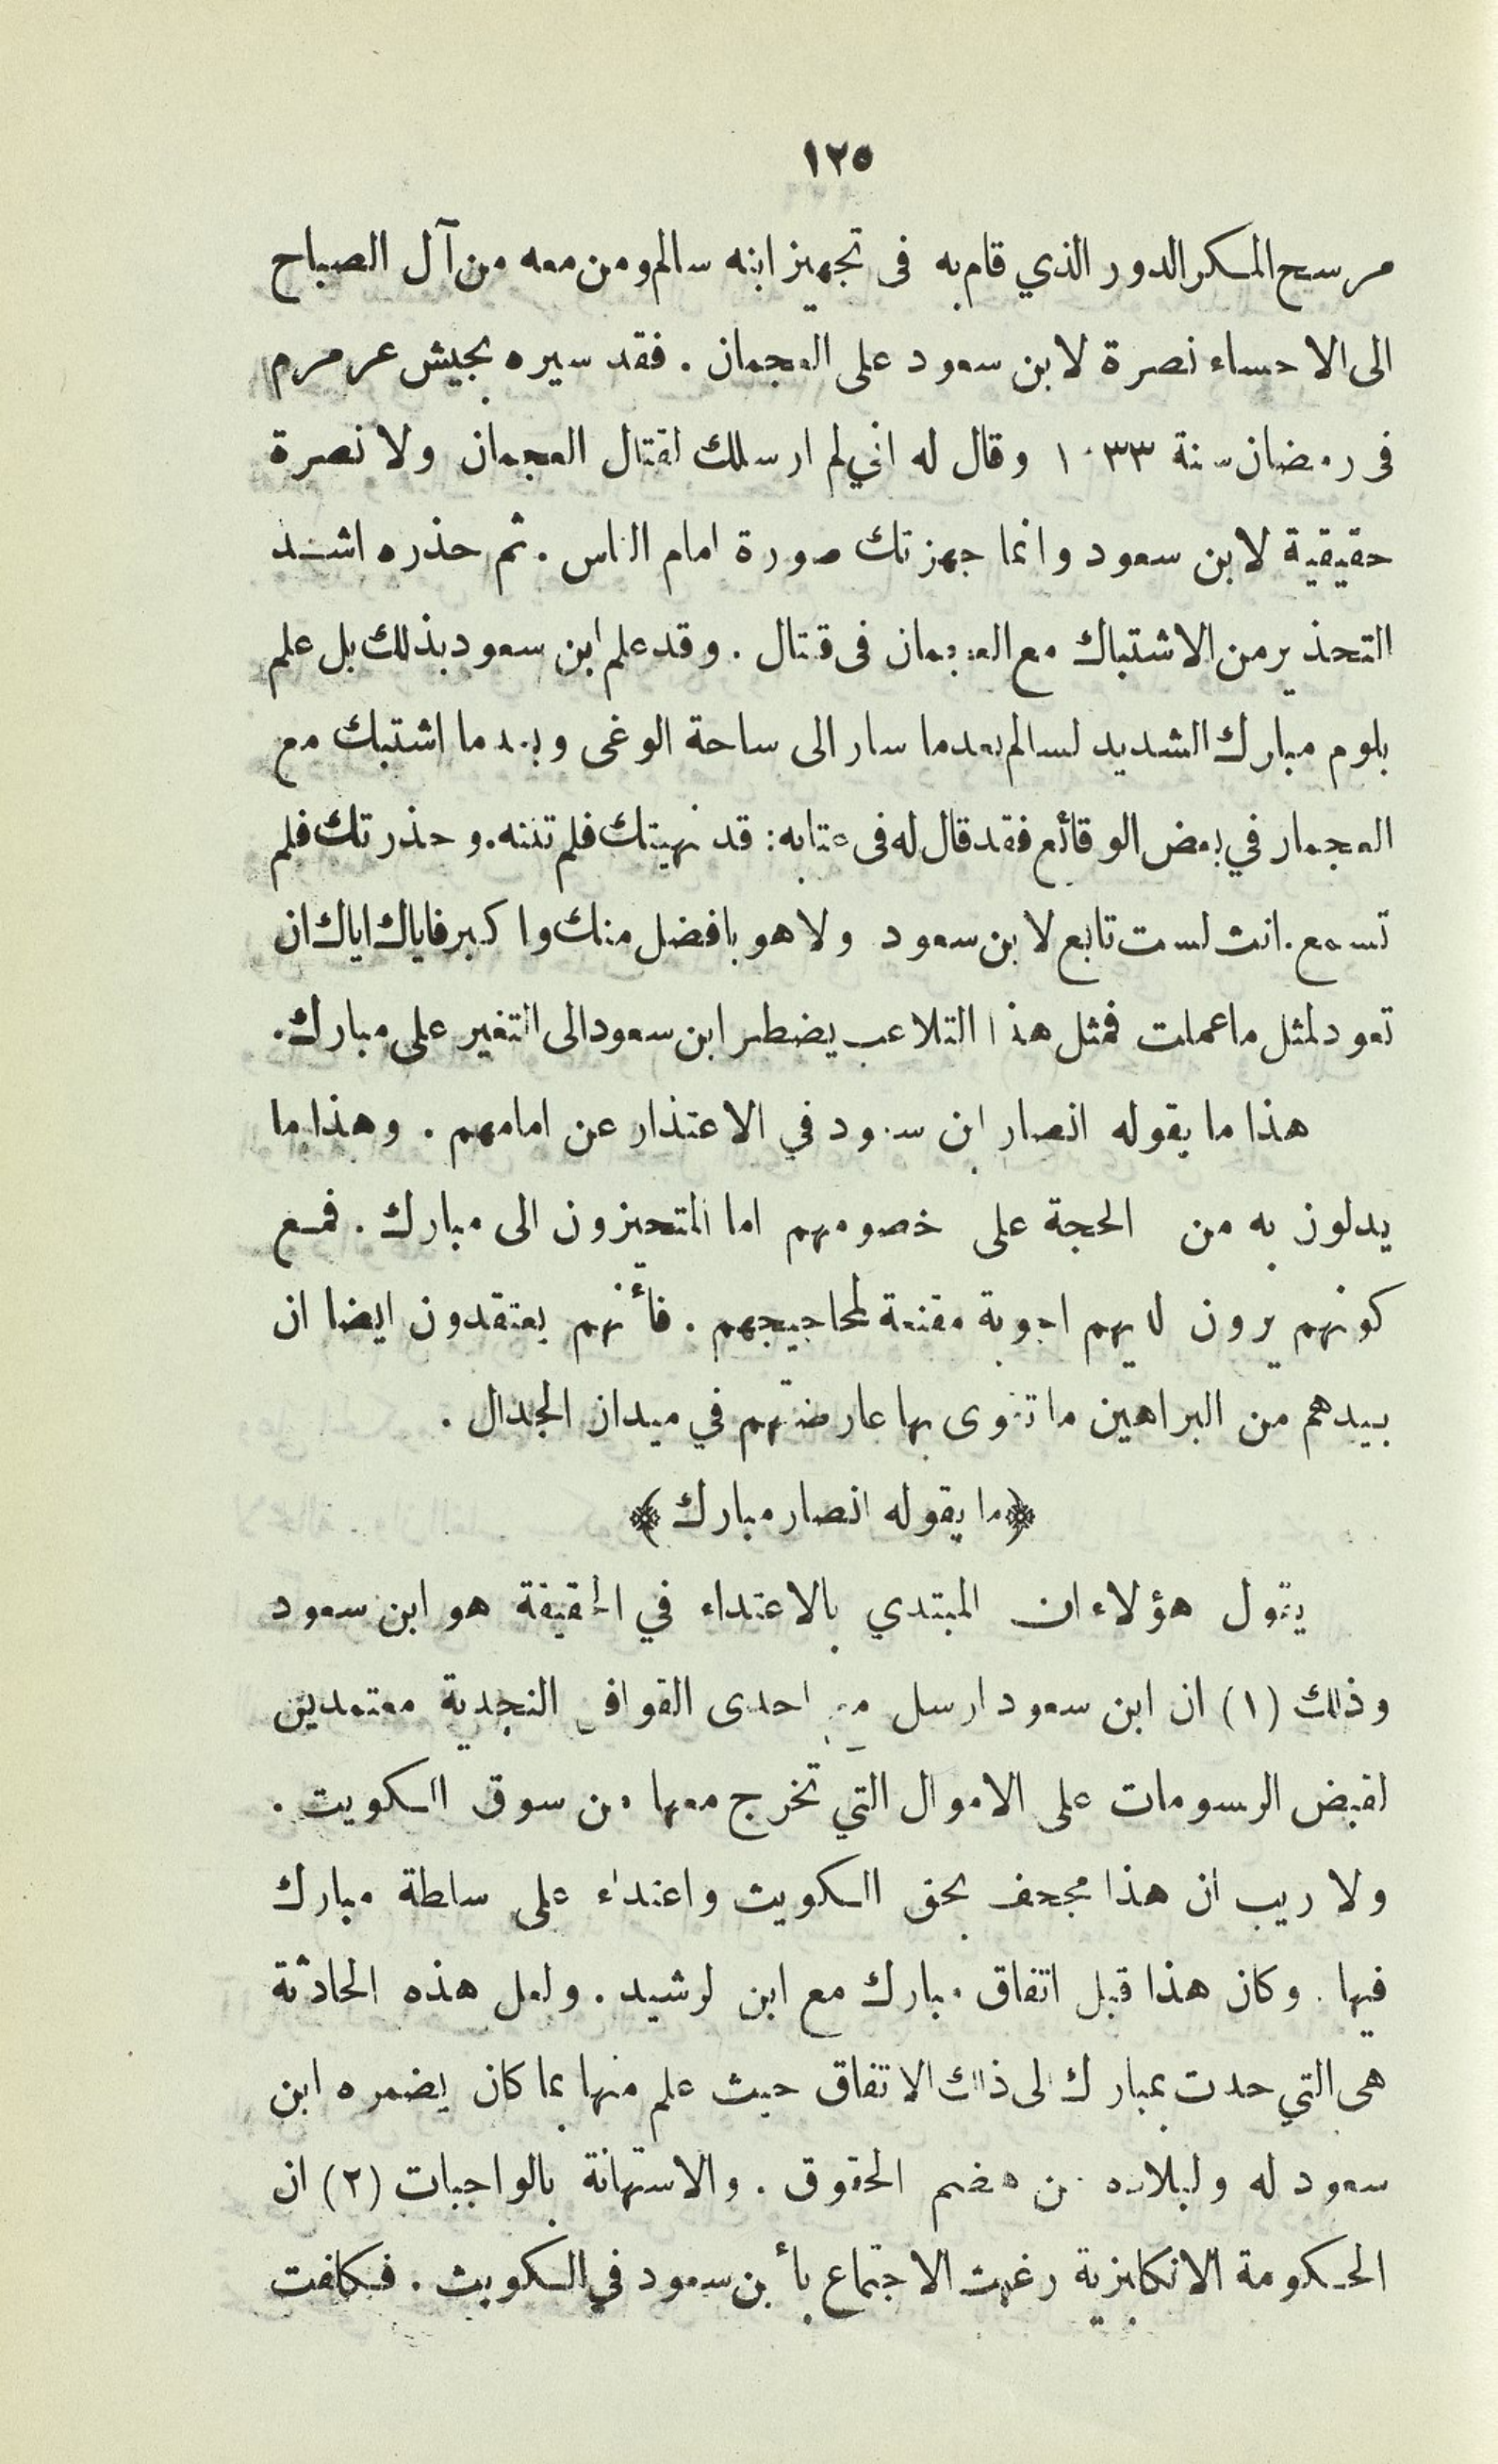 ١٢٥
مرسح المكر الدور الذي قام به فى تجهيز ابنه سالم ومن معه من آل الصباح
الى الاحساء نصرة لابن سعود على العجمان . فقد سيره بجيش عرمرم
فى رمضان سنة ١٠٣٣ وقال له اني لم ارسلك لقتال العجمان ولا نصرة
حقيقية لابن سعود وانما جهزتك صورة امام الناس . ثم حذره اشد
التحذير من الاشتباك مع العجمان فى قتال . وقد علم ابن سعود بذلك بل علم
بلوم مبارك الشديد لسالم بعدما سار الى ساحة الوغى وبعدما اشتبك مع
العجمان في بعض الوقائع فقد قال له فى عتابه : قد نهيتك فلم تنته . وحذرتك فلم
تسمع . انت لست تابع لابن سعود ولا هو بافضل منك واكبر فاياك اياك ان
تعود لمثل ما عملت فمثل هذا التلاعب يضطر ابن سعود الى التغير على مبارك .
هذا ما يقوله انصار ابن سعود في الاعتذار عن امامهم . وهذا ما
يدلون به من الحجة على خصومهم اما المتحيزون الى مبارك . فمع
كونهم يرون لديهم اجوبة مقنعة لمحاجيجهم . فأنهم يعتقدون ايضا ان
بيدهم من البراهين ما تقوى بها عارضتهم في ميدان الجدال .
﴿ ما يقوله انصار مبارك ﴾
يقول هؤلاء ان المبتدي بالاعتداء في الحقيقة هو ابن سعود
وذلك (١) ان ابن سعود ارسل مع احدى القوافل النجدية معتمدين
لقبض الرسومات على الاموال التي تخرج معها من سوق الكويت .
ولا ريب ان هذا مجحف بحق الكويت واعتداء على سلطة مبارك
فيها . وكان هذا قبل اتفاق مبارك مع ابن لرشيد . ولعل هذه الحادثة
هى التي حدت بمبارك الى ذلك الاتفاق حيث علم منها بما كان يضمره ابن
سعود له ولبلاده من هضم الحقوق . والاستهانة بالواجبات (٢) ان
الحكومة الانكليزية رغبت الاجتماع بأبن سعود في الكويت . فكلفت